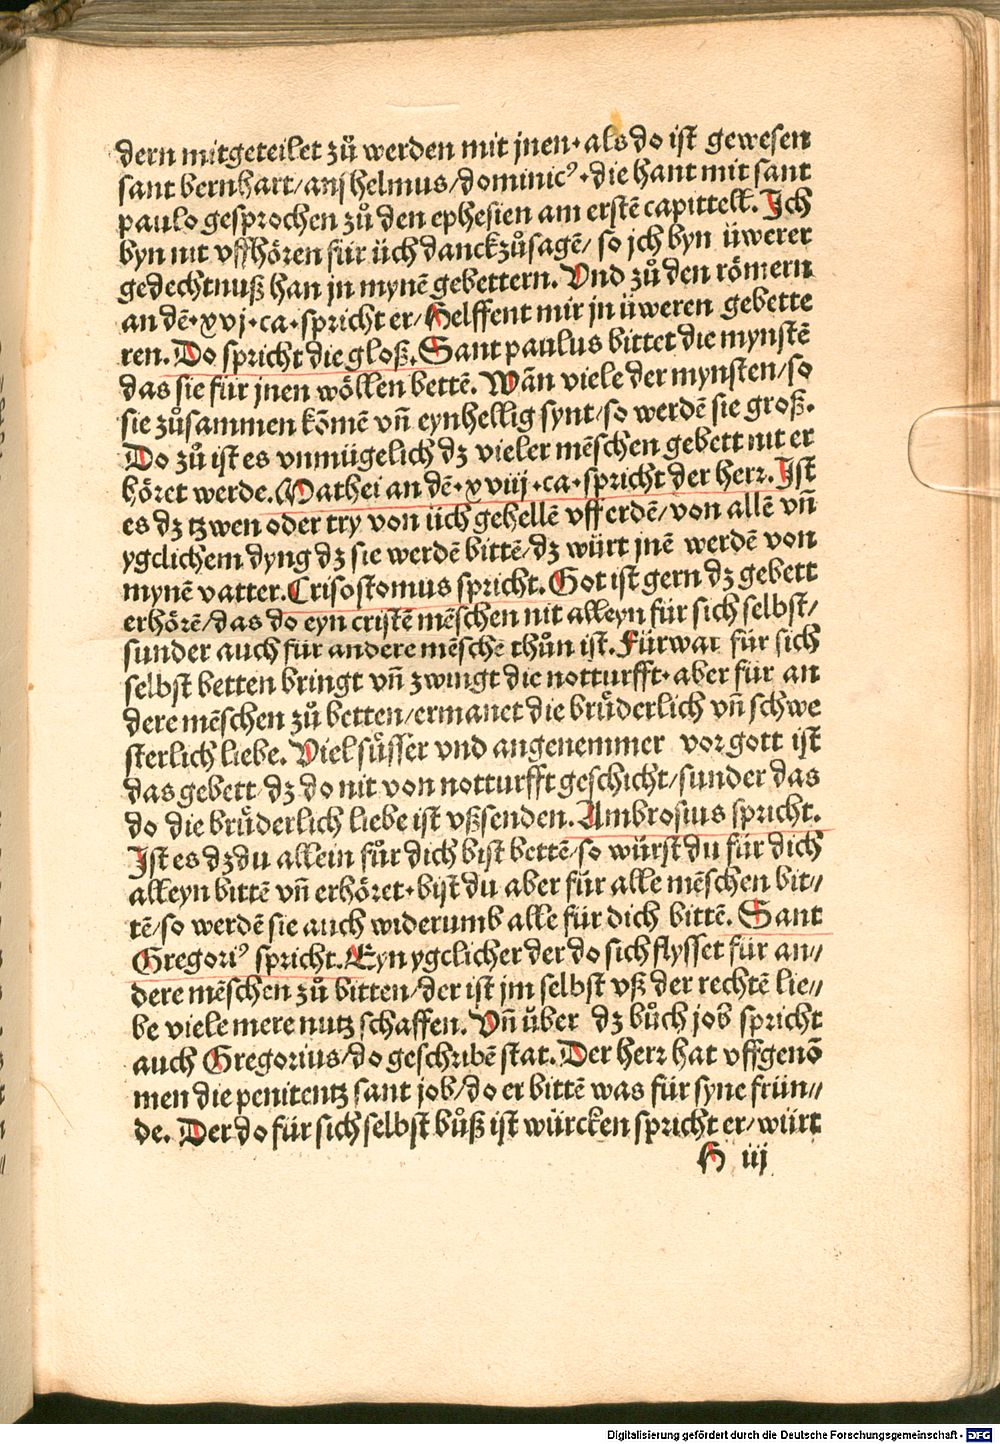 dern mitgeteilet zů werden mit jnen · als do ist gewesen
sant bernhart/ anſhelmus/ dominicꝰ · die hant mit sant
paulo gesprochen zů den ephesien am erstē capittell. Ich
byn nit vffhören für üch danckzůsagē/ so jch byn üwerer
gedechtnuß han jn mynē gebettern. Vnd zů den römern
an dē · xvj · ca · spricht er/ Helffent mir jn üweren gebette
ren. Do spricht die gloß. Sant paulus bittet die mynstē
das sie für jnen wöllen bettē. Wān viele der mynsten/ so
sie zůsammen kōmē vn̄ eynhellig synt/ so werdē sie groß.
Do zů ist es vnmügelich dz vieler mēschen gebett nit er
höret werde. Mathei an dē · xviij · ca · spricht der herr. Ist
es dz tzwen oder try von üch gehellē vff erdē/ von allē vn̄
ygclichem dyng dz sie werdē bittē/ dz würt jnē werdē von
mynē vatter. Crisostomus spricht. Got ist gern dz gebett
erhörē/ das do eyn cristē mēschen nit alleyn für sich selbst/
sunder auch für andere mēschē thůn ist. Fürwar für sich
selbst betten bringt vn̄ zwingt die notturfft · aber für an
dere mēschen zů betten/ ermanet die brüderlich vn̄ schwe
sterlich liebe. Viel süsser vnd angenemmer vor gott ist
das gebett/ dz do nit von notturfft geschicht/ sunder das
do die brüderlich liebe ist vßsenden. Ambrosius spricht.
Ist es dz du allein für dich bist bettē/ so würst du für dich
alleyn bittē vn̄ erhöret · bist du aber für alle mēschen bit//
tē/ so werdē sie auch widerumb alle für dich bittē. Sant
Gregoriꝰ spricht. Eyn ygclicher der do sich flysset für an//
dere mēschen zů bitten/ der ist jm selbst vß der rechtē lie//
be viele mere nutz schaffen. Vn̄ über dz bůch job spricht
auch Gregorius/ do geschribē stat. Der herr hat vffgenō
men die penitentz sant job/ do er bittē was für syne frün//
de. Der do für sich selbst bůß ist würcken spricht er/ würt
H iij
Digitalisierung gefördert durch die Deutsche Forschungsgemeinschaft - DFG